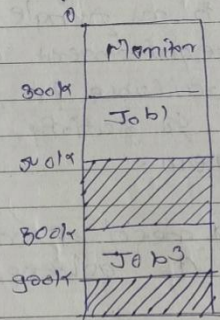 0
Monitor
300k
Job1
800k
Job3
900k